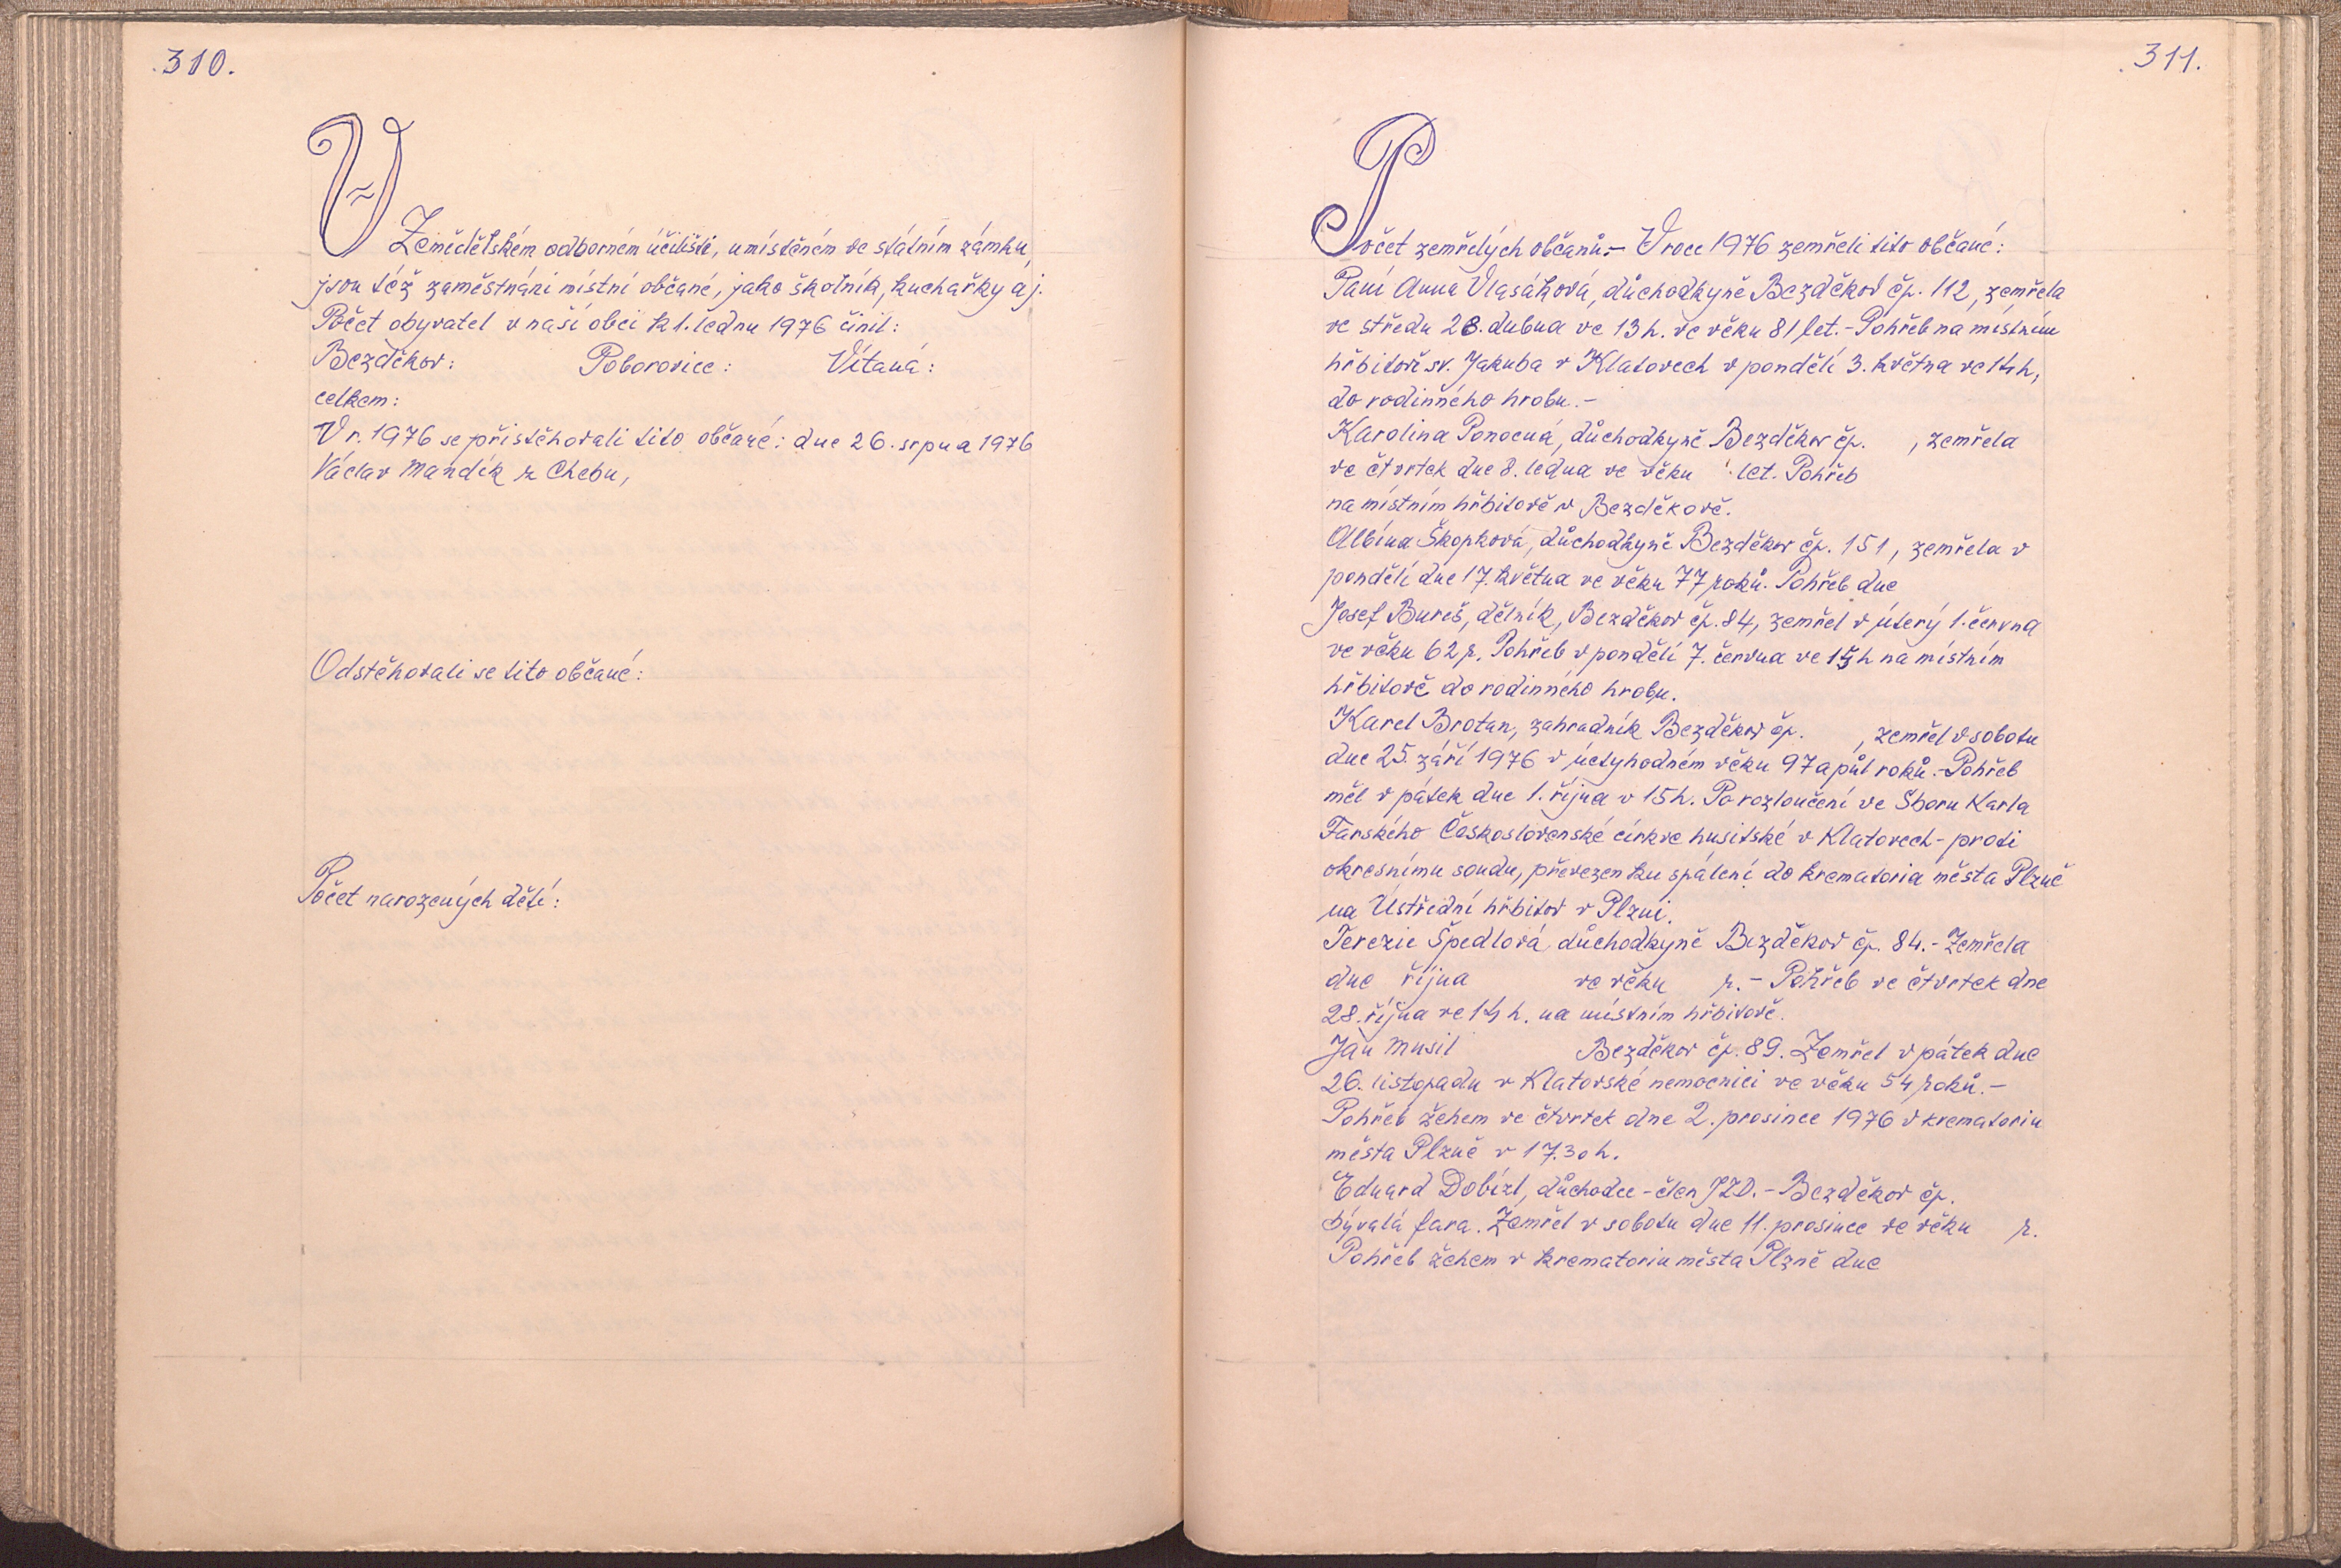 310.
V Zemědělském odborném učilišti, umístěném ve státním zámku,
jsou též zaměstnáni místní občané, jako školník, kuchařky aj.
Počet obyvatel v naší obci k 1. lednu 1976 činil:
Bezděkov: Poborovice: Vítaná:
celkem:
V r. 1976 se přistěhovali tito občané: dne 26. srpna 1976
Václav Mandík z Chebu,
Odstěhovali se tito občané:
Počet narozených dětí:
311.
Počet zemřelých občanů:- V roce 1976 zemřeli tito občané:
Paní Anna Vlasáková, důchodkyně Bezděkov čp. 112, zemřela
ve středu 28. dubna ve 13 h. ve věku 81 let.- Pohřeb na místním
hřbitově sv. Jakuba v Klatovech v pondělí 3. května ve 14 h,
do rodinného hrobu.-
Karolina Ponocná, důchodkyně Bezděkov čp. , zemřela
ve čtvrtek dne 8. ledna ve věku let. Pohřeb
na místním hřbitově v Bezděkově.
Albína Škopková, důchodkyně Bezděkov čp. 151, zemřela v
pondělí dne 17. května ve věku 77 roků. Pohřeb dne
Josef Bureš, dělník, Bezděkov čp. 84, zemřel v úterý 1. června
ve věku 62 r. Pohřeb v pondělí 7. června ve h na místním
hřbitově do rodinného hrobu.
Karel Brotan, zahradník Bezděkov čp. , zemřel v sobotu
dne 25. září 1976 v úctyhodném věku 97 a půl roků.- Pohřeb
měl v pátek dne 1. října v 15 h. Po rozloučení ve Sboru Karla
Farského Československé církve husitské v Klatovech - proti
okresnímu soudu, převezen ku spálení do krematoria města Plzně
na Ústřední hřbitov v Plzni.
Terezie Špedlová důchodkyně Bezděkov čp. 84.- Zemřela
dne října ve věku r.- Pohřeb ve čtvrtek dne
28. října ve 14 h. na místním hřbitově.
Jan Musil Bezděkov čp. 89. Zemřel v pátek dne
26. listopadu v Klatovské nemocnici ve věku 54 roků.-
Pohřeb žehem ve čtvrtek dne 2. prosince 1976 v krematoriu
města Plzně v 17.30 h.
Eduard Dobízl, důchodce - člen JZD.- Bezděkov čp.
bývalá fara. Zemřel v sobotu dne 11. prosince ve věku r.
Pohřeb žehem v krematoriu města Plzně dne